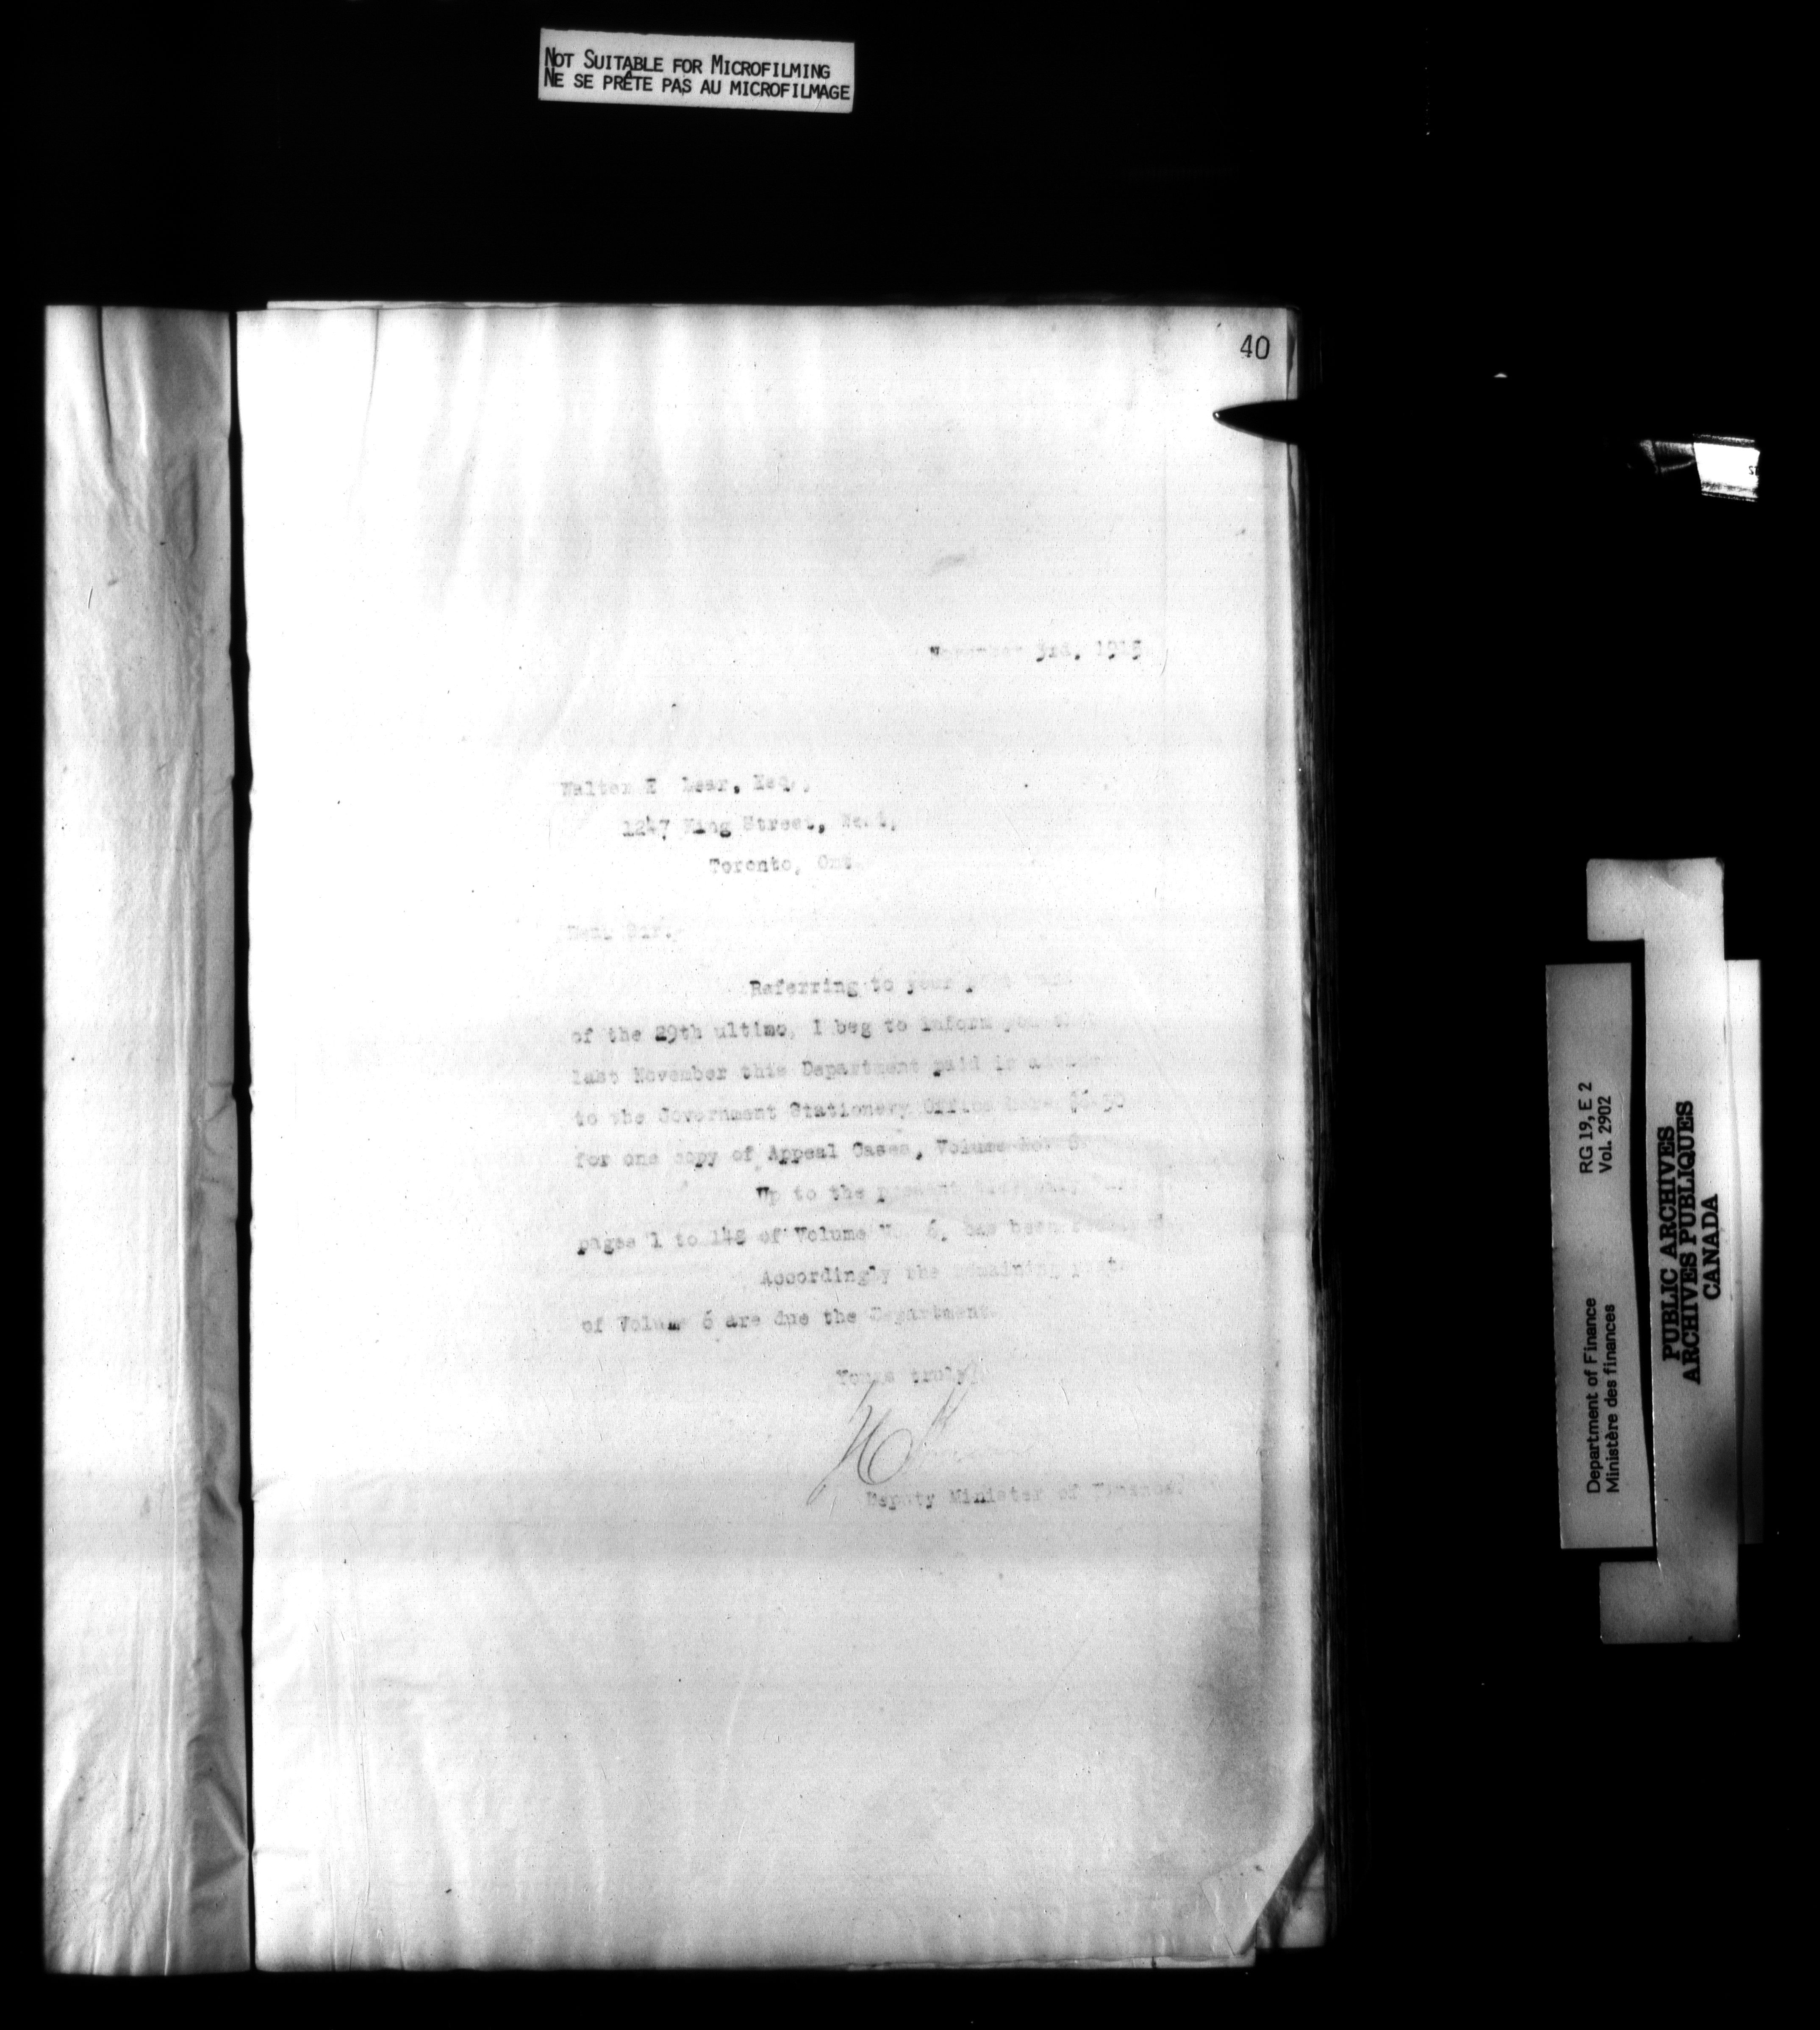 NOT SUITABLE FOR MICROFILMING
NE SE PRÊTE PAS AU MICROFILMAGE
40
November 3rd, 1915
Walter E Lear, Esq.,
1247 King Street, West,
Toronto, Ont.
Dear Sir,
Referring to your
of the 29th ultimo, I beg to inform you that
last November this Department paid in
to the Government Stationery Office $6.50
for one copy of Appeal Cases, Volume No. 6.
Up to the present
pages 1 to 148 of Volume 6, has been
Accordingly the remaining parts
of Volume 6 are due the Department.
Yours truly,
Deputy Minister of Finance.
RG 19, E 2
Vol. 2902
Department of Finance
Ministère des finances
PUBLIC ARCHIVES
ARCHIVES PUBLIQUES
CANADA